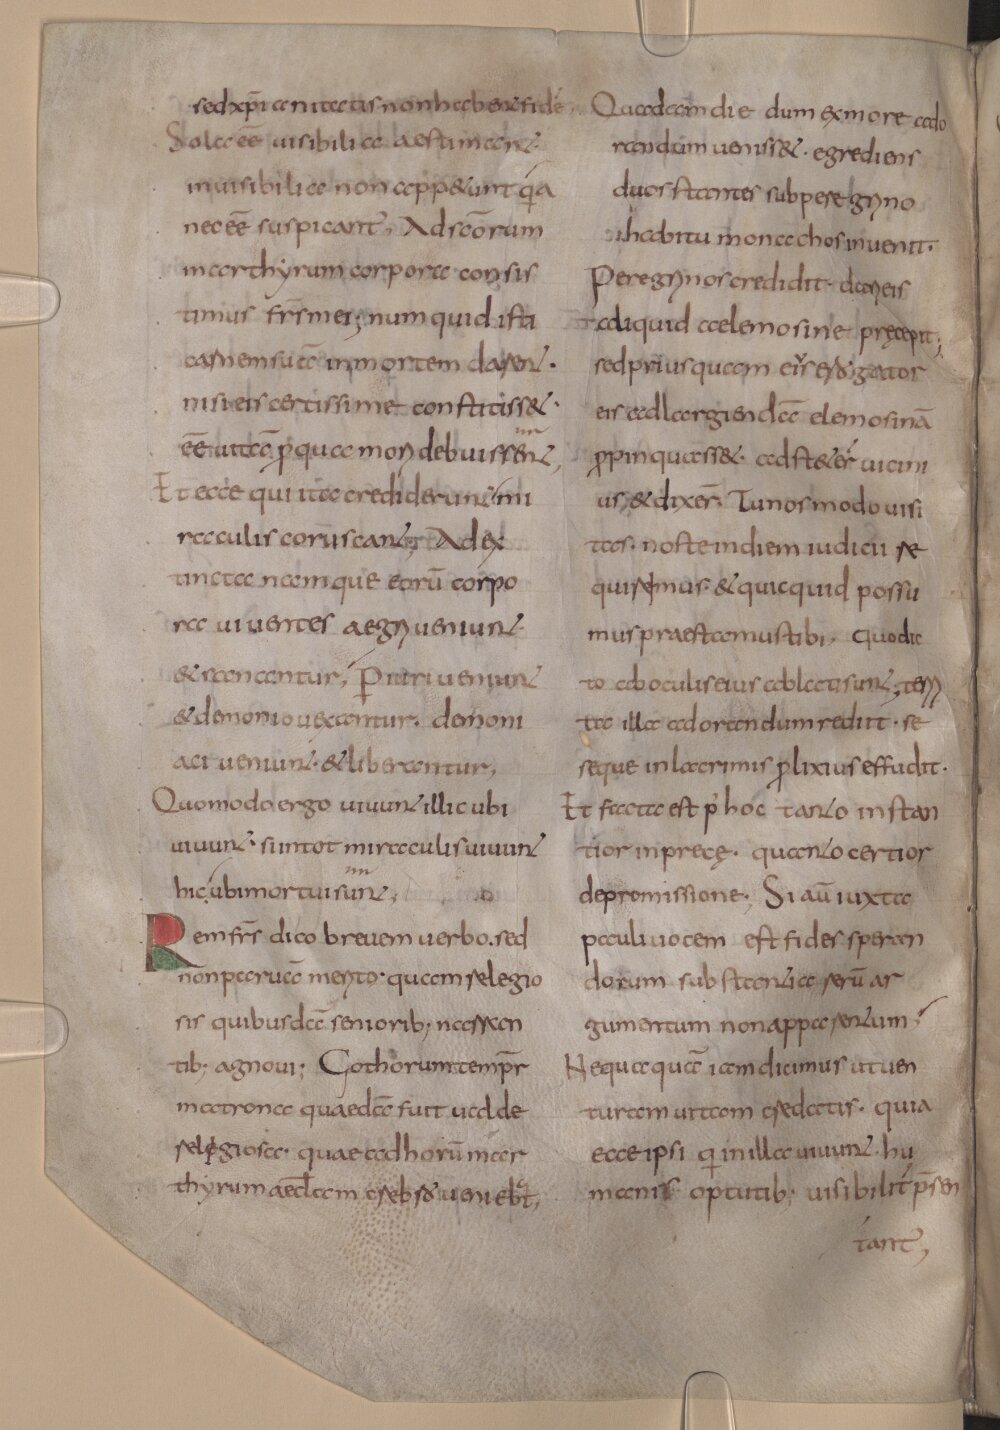 sed xp̄i amatas non haberet fidē.
Sola eē̄ uisibilia aestimaret
inuisibilia non appetunt q̣a
nec eē̄ suspicant̄, Ad scōrum
marthyrum corpora consis
timus frs̄ mei; numquid isti
carnem suā in mortem darent.
nisi eis certissime constitisset.
eē̄ uitā p̄ qua mori debuissent,
Et ecce qui ita crediderunt mi
raculis coruscant; Ad ex
tincta namque eorū corpo
ra uiuentes aegri ueniunt.
& sanantur, Piuri ueniunt
& demonio uexantur. demoni
aci ueniunt. & liberantur,
Quomodo ergo uiuunt illic ubi
uiuunt. si in tot miraculis uiuunt
hic, ubi mortui sunt,
Rem frs̄ dico breuem uerbo. sed
non paruā merito. quam relegio
sis quibusdā seniorib; narran
tib; agnoui; Gothorum temp̄r
matrona quaedā fuit ualde
relegiosa. quae ad horū mar
thyrum aeclam crebro ueniebt̄,
Quadam die dum ex more ado
randum uenisset. egrediens
duos stantes sub peregrino
ihabitu monachos inuenit.
Peregrinos credidit. dari eis
aliquid aelemosine pręcepit;
sed priusquam eis erogator
eis ad largiendā elemosinā
p̄pinquasset. adsteter uicini
us, & dixer̄. Tu nos modo uisi
tas. nos te in diem iudicii re
quiremus. & quicquid possu
mus praestamus tibi, Quo dic
to ab oculis eius ablati sunt, terri
ta illa ad orandum rediit. se
seque in lacrimis p̄lixius effudit.
Et facta est p̄ hoc tanto instan
tior in prece. quanto certior
de promissione; Si aū iuxta
pauli uocem est fides speran
dorum substantia rerū ar
gumentum non apparentum,
Nequaquā iam dicimus ut uen
turam uitam credatis. quia
ecce ipsi qi in illa uiuunt. hu
manis optutib; uisibilit̄ p̄sen
tant̄,